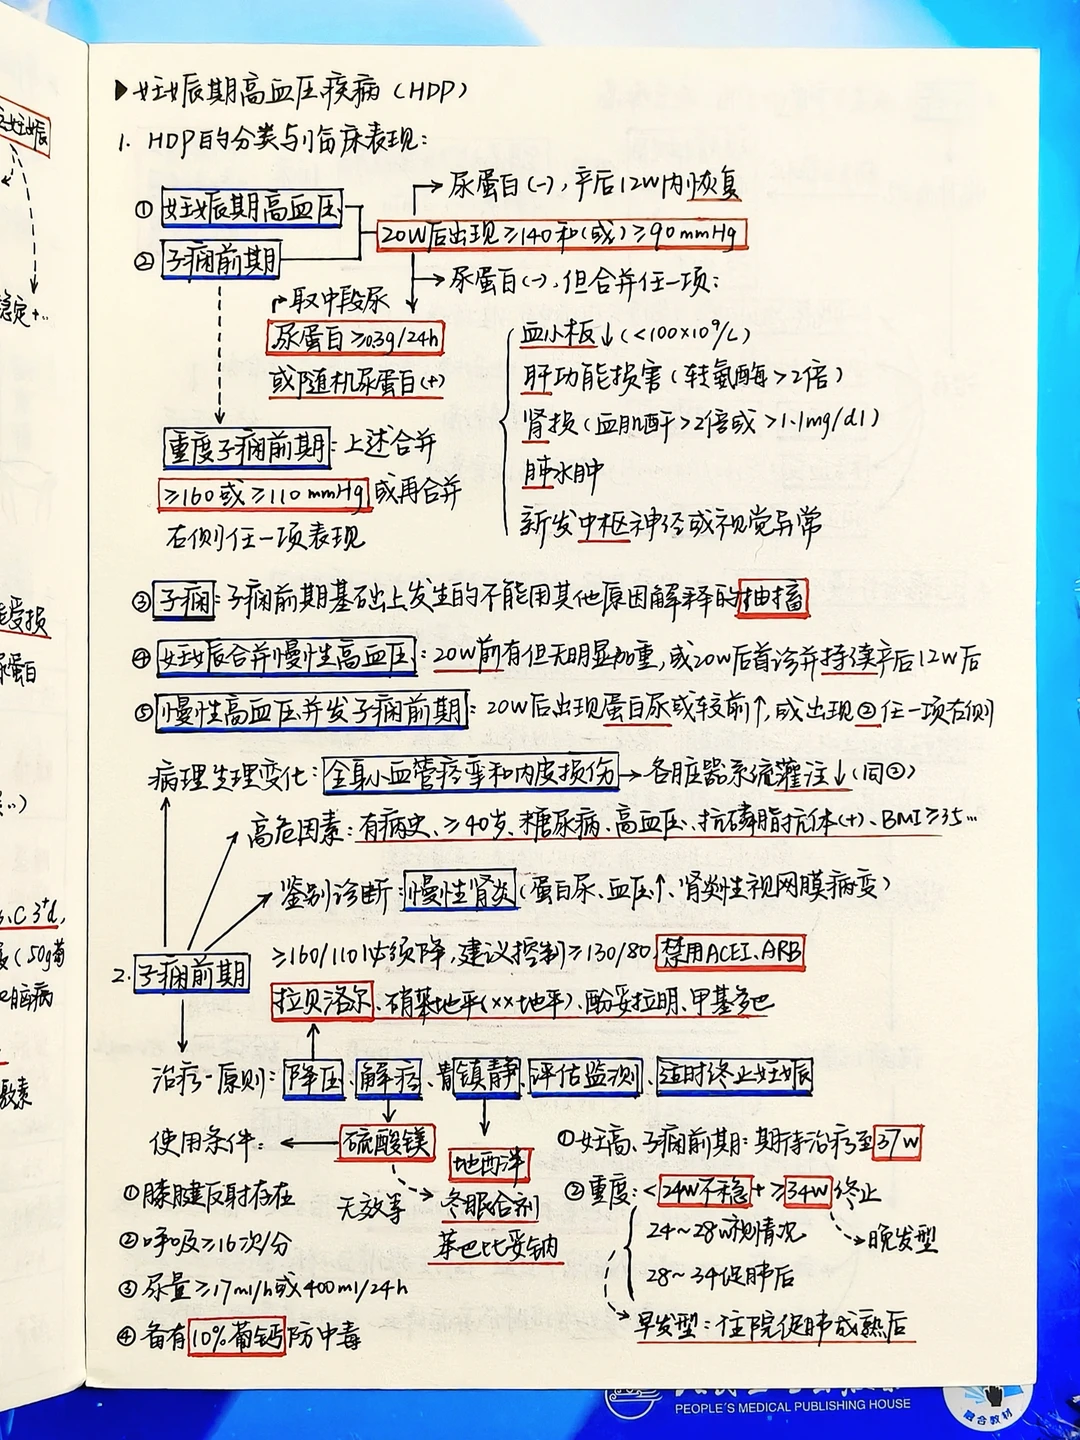 妊娠
稳定+…
▶妊娠期高血压疾病（HDP）
1. HDP的分类与临床表现：
→尿蛋白(-)，产后12W内恢复
① 妊娠期高血压
20W后出现≥140和(或)≥90mmHg
② 子痫前期
→尿蛋白(-)，但合并任一项：
取中段尿
尿蛋白≥0.3g/24h
或随机尿蛋白(+)
血小板↓(<100×10⁹/L)
肝功能损害(转氨酶>2倍)
肾损(血肌酐>2倍或>1.1mg/dl)
肺水肿
新发中枢神经或视觉异常
重度子痫前期：上述合并
≥160或≥110mmHg或再合并
右侧任一项表现
受损
尿蛋白
③子痫：子痫前期基础上发生的不能用其他原因解释的抽搐
④妊娠合并慢性高血压：20W前有但无明显加重，或20W后首诊并持续产后12W后
⑤慢性高血压并发子痫前期：20W后出现蛋白尿或较前↑，或出现②任一项右侧
病理生理变化：全身小血管痉挛和内皮损伤→各脏器系统灌注↓(同②)
高危因素：有病史、≥40岁、糖尿病、高血压、抗磷脂抗体(+)、BMI≥35…
鉴别诊断：慢性肾炎(蛋白尿、血压↑、肾炎性视网膜病变)
(50g葡
2.子痫前期
≥160/110必须降，建议控制≥130/80，禁用ACEI、ARB
拉贝洛尔、硝苯地平(××地平)、酚妥拉明、甲基多巴
治疗-原则：降压、解痉、镇静、评估监测、适时终止妊娠
激素
使用条件：←硫酸镁
地西泮
无效等
冬眠合剂
苯巴比妥钠
①膝腱反射存在
②呼吸≥16次/分
③尿量≥17ml/h或400ml/24h
④备有10%葡钙防中毒
①妊高、子痫前期：期待治疗至37W
②重度：<24W不稳+≥34W终止
24~28W视情况
28~34促肺后
晚发型
早发型：住院促肺成熟后
PEOPLE'S MEDICAL PUBLISHING HOUSE
融合教材